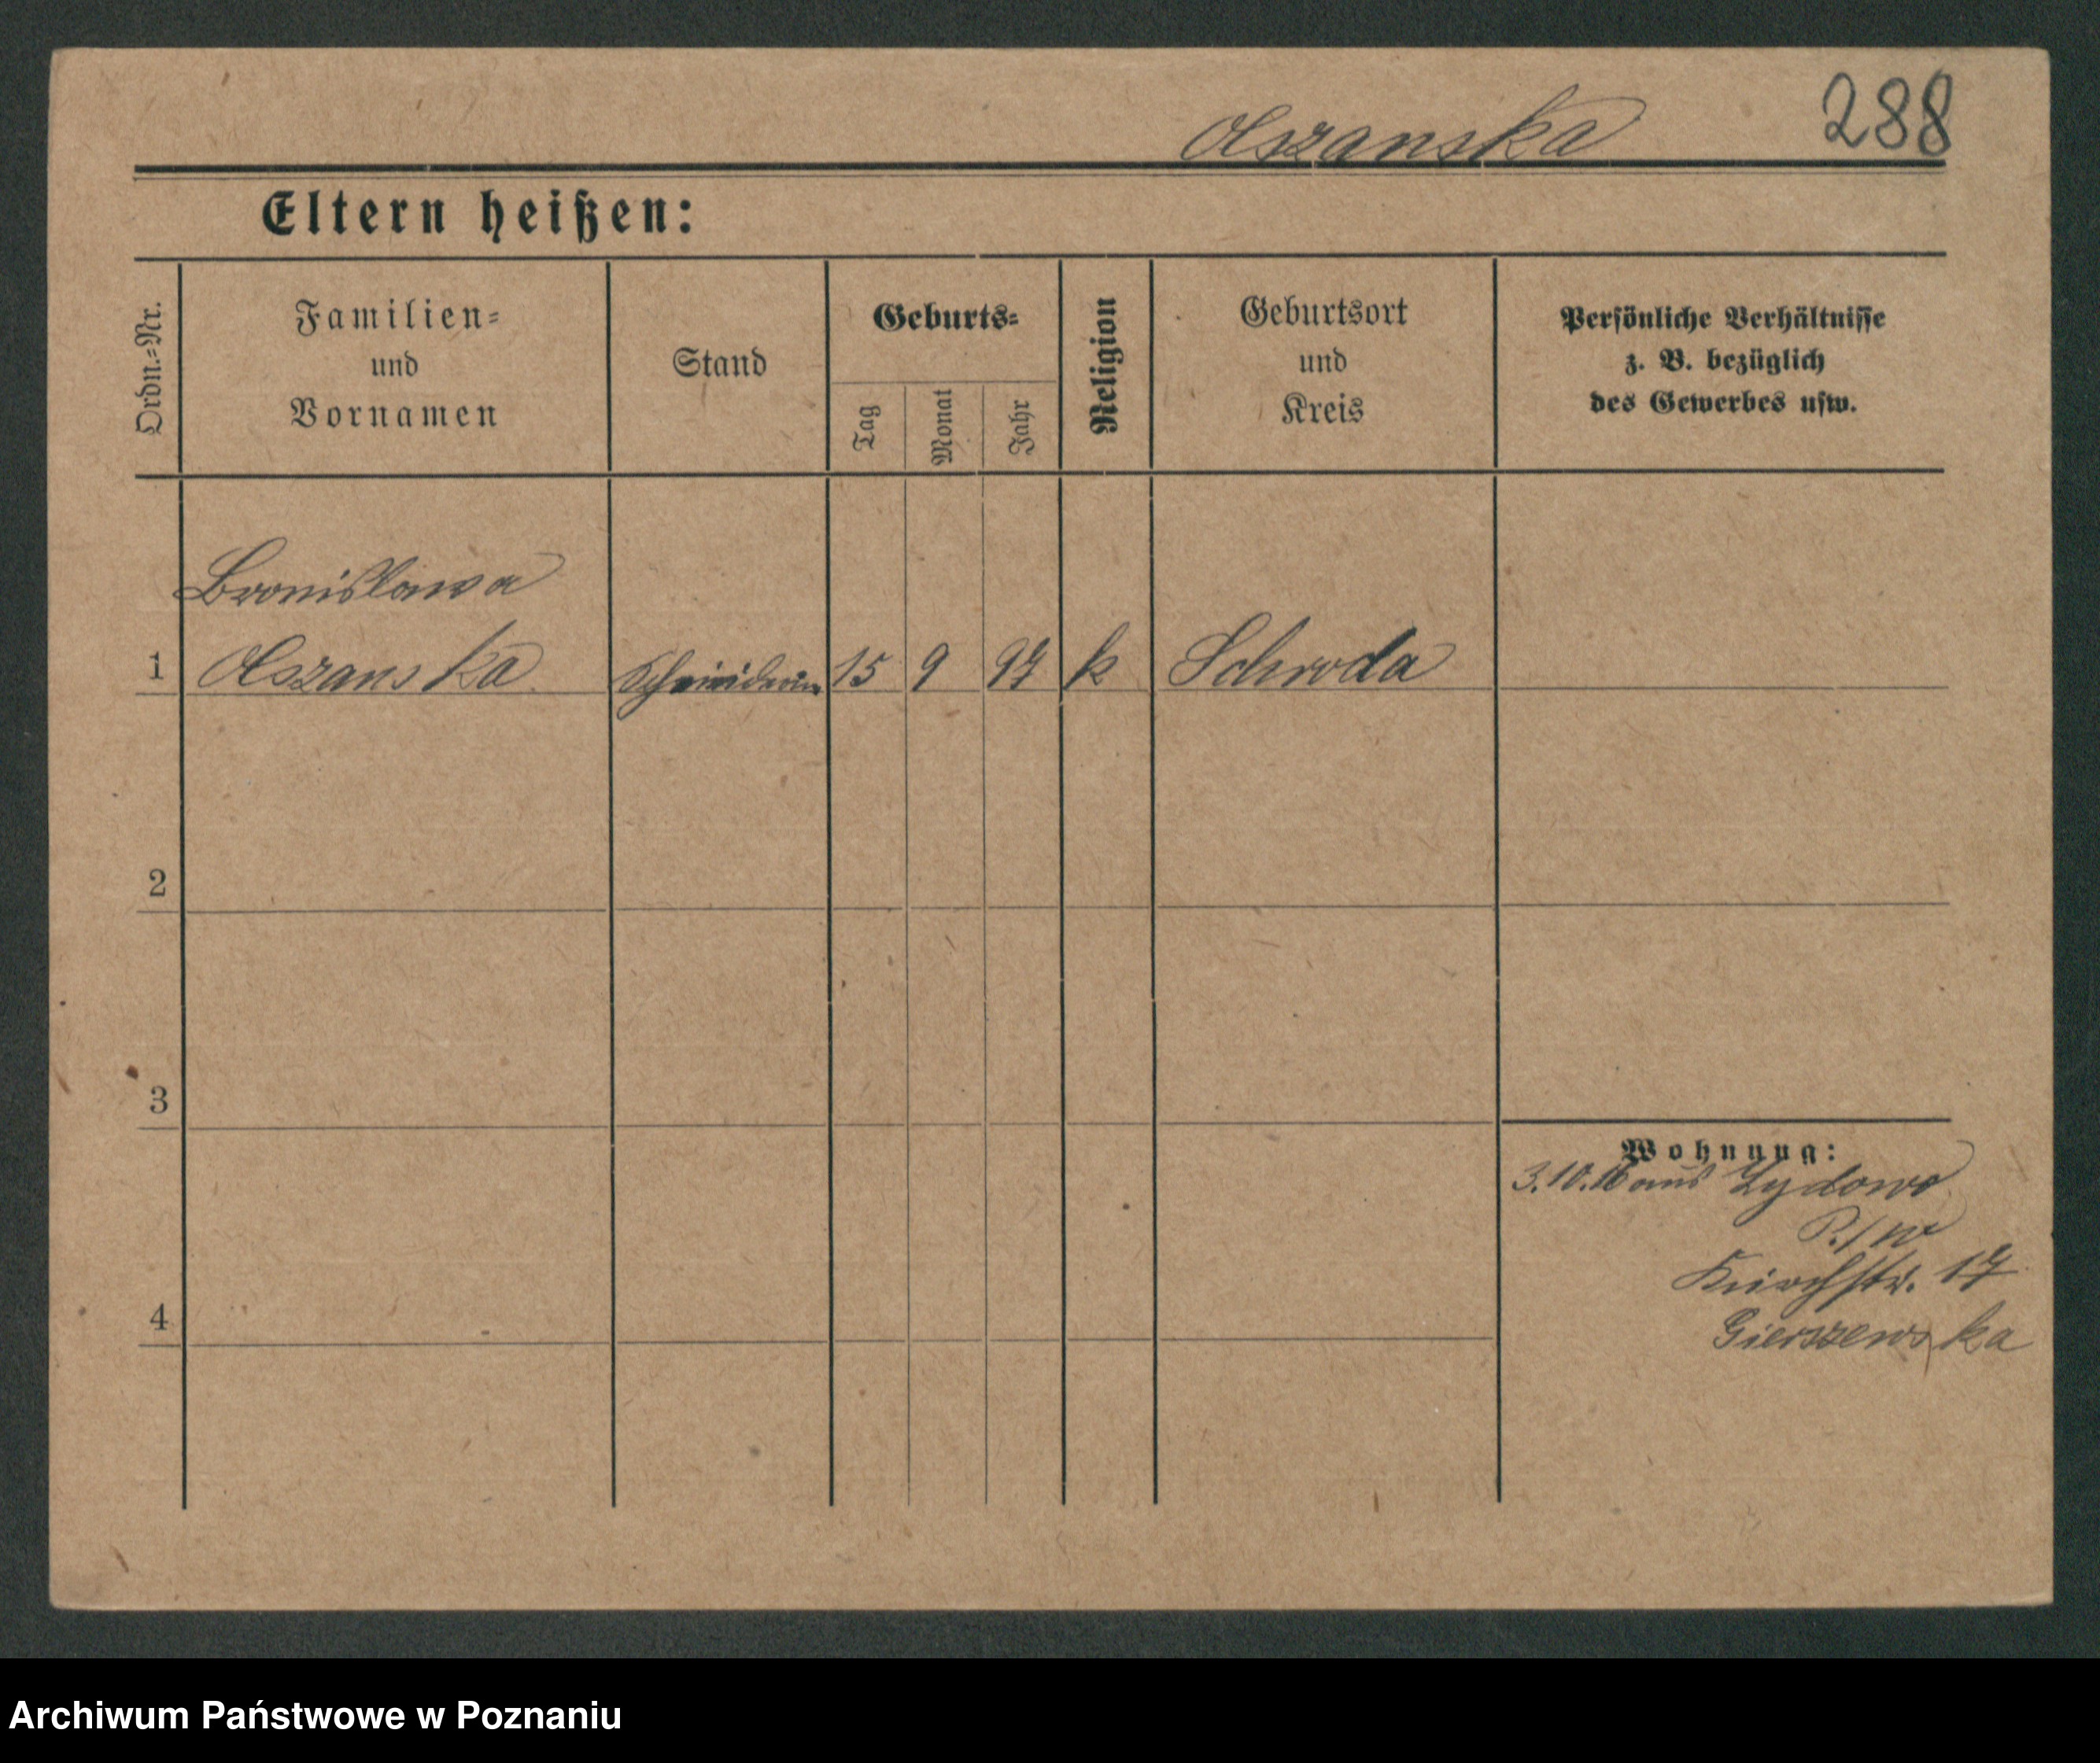 Olszanska
288
Eltern heißen:
Ordn.-Nr.
Familien-
und
Vornamen
Stand
Geburts-
Tag
Monat
Jahr
Religion
Geburtsort
und
Kreis
Persönliche Verhältnisse
z. B. bezüglich
des Gewerbes usw.
Bronislawa
1 Olszanska Schneiderin 15 9 97 k Schroda
2
3
Wohnung:
3.10.16 aus Zydowo
Kirchstr. 17
4
Gierszewska
Archiwum Państwowe w Poznaniu